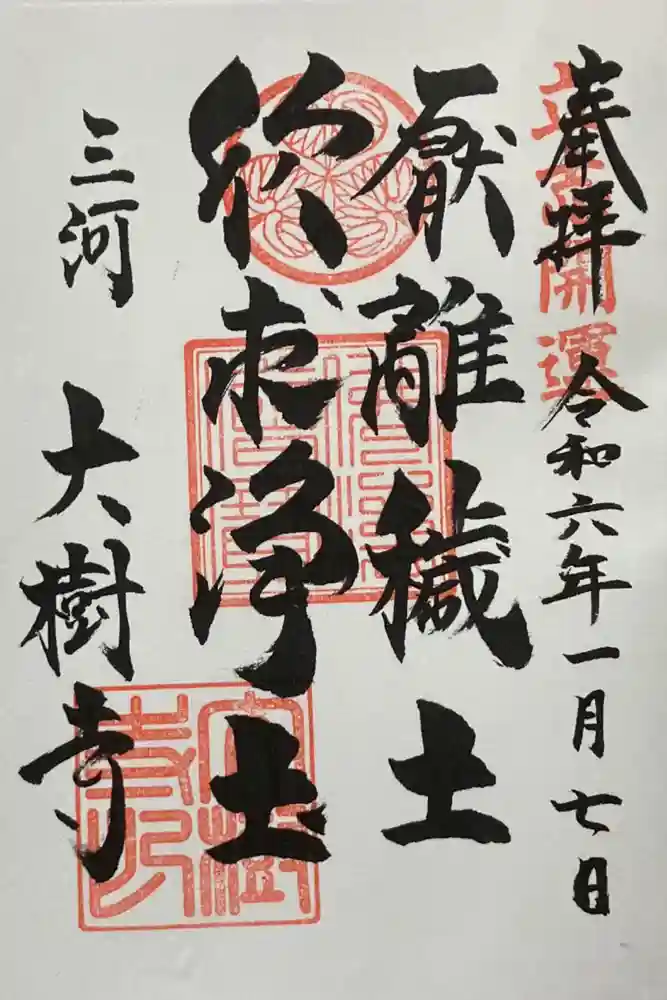 奉拝
令和六年一月七日
開運
厭離穢土
欣求浄土
三河
大樹寺